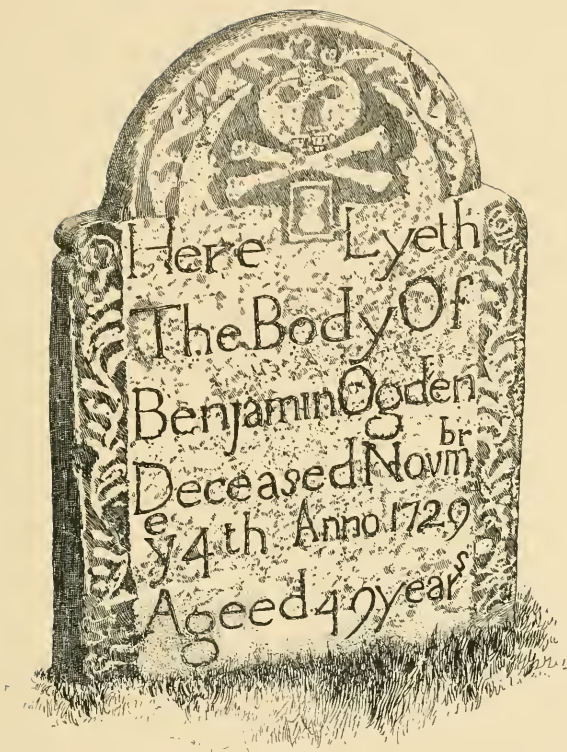 Here Lyeth
The Body Of
Benjamin Ogden
Deceased Novmbr
ye 4th Anno 1729
Ageed 49 years